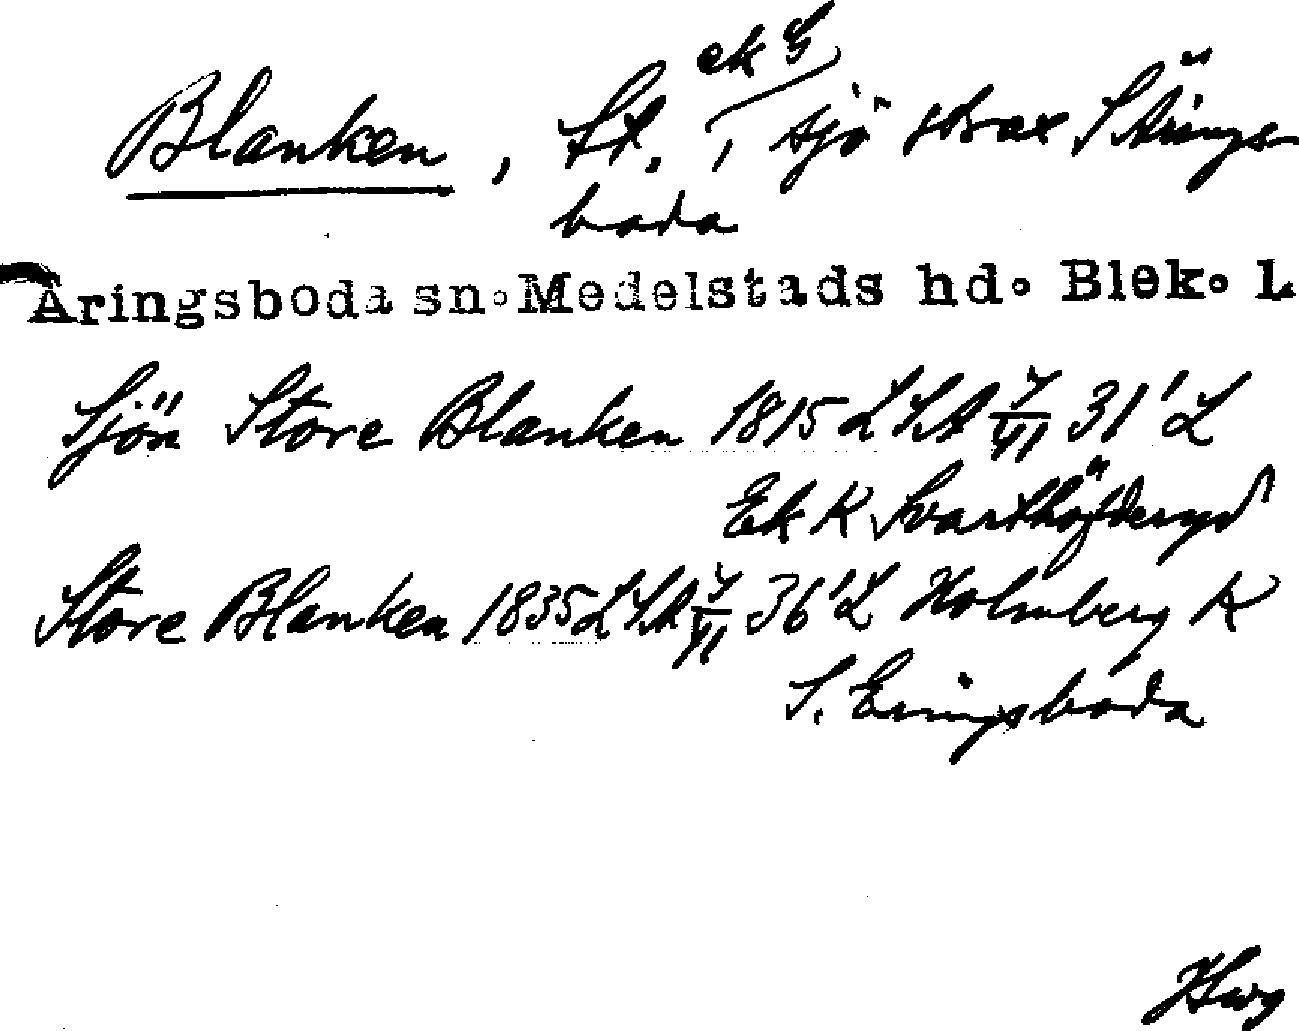 ek S
Blanken, St., sjö strax S Äringsboda
Äringsboda sn. Medelstads hd. Blek. L
Sjön Store Blanken 1815 LSA 7/VI 31' L
Ek K Svarthöfderyd
Store Blanken 1835 LSA 7/VI 36' L Holmberg K
S. Eringsboda